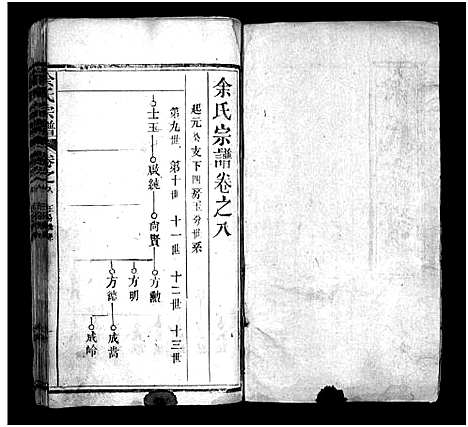 余氏宗譜卷之八
起元公支下四房玉分世系
第九世 第十世 十一世 十二世 十三世
士玉 啟純 尚賢 方勲
方明
方德 成嵩
成岭
余氏宗譜 卷之八